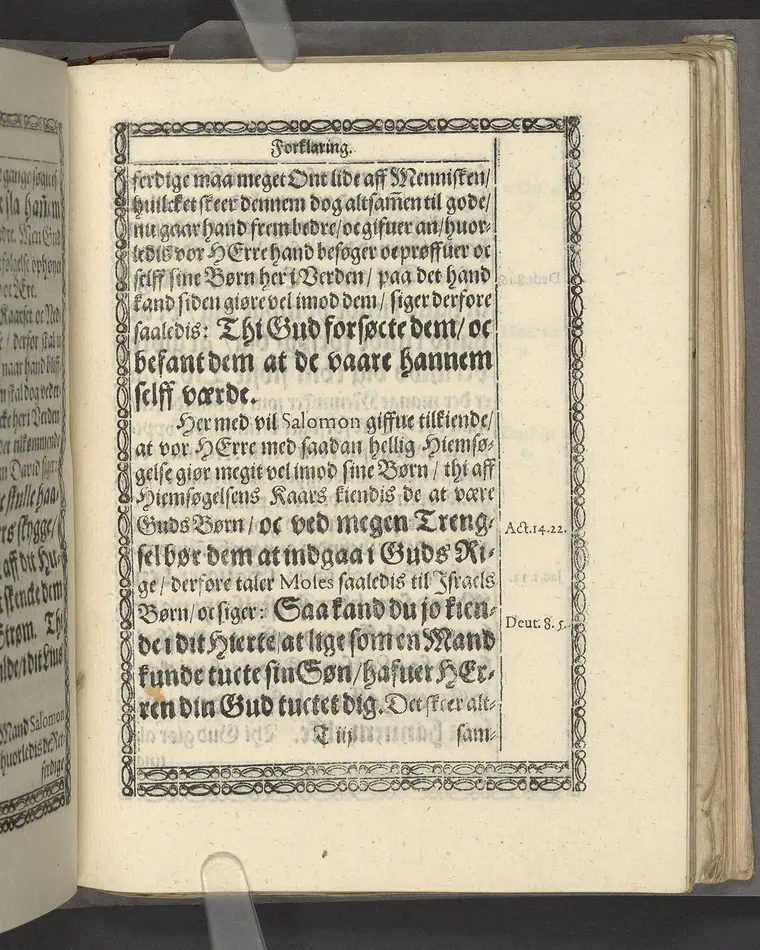 Forklaring.
ferdige maa meget Ont lide aff Mennisken/
huilcket skeer dennem dog altsam̃en til gode/
nu gaar hand frem bedre/ oc gifuer an/ huor-
ledis vor HErre hand besøger oc prøffuer oc
selff sine Børn her i Verden/ paa det hand
kand siden giøre vel imod dem/ siger derfore
saaledis: Thi Gud forsøcte dem/ oc
befant dem at de vaare hannem
selff værde.
Her med vil Salomon giffue tilkiende/
at vor HErre med saadan hellig Hiemsø-
gelse giør megit vel imod sine Børn/ thi aff
Hiemsøgelsens Kaars kiendis de at være
Guds Børn/ oc ved megen Treng-
sel bør dem at indgaa i Guds Ri-
ge/ derfore taler Moses saaledis til Israels
Børn/ oc siger: Saa kand du jo kien-
de i dit Hierte/ at lige som en Mand
kunde tucte sin Søn/ hafuer HEr-
ren din Gud tuctet dig. Det skeer alt-
T iij sam-
Act. 14. 22.
Deut. 8. 5.
Kaarset oc
derfor skal
naar hand
her i Verden
David
Mand Salomon
ferdige